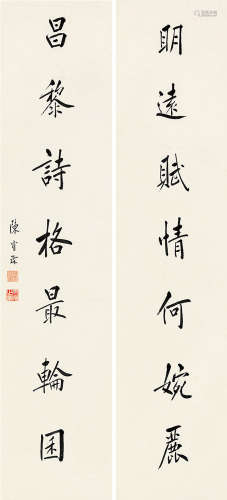 明遠賦情何婉麗
昌黎詩格最輪囷
陳